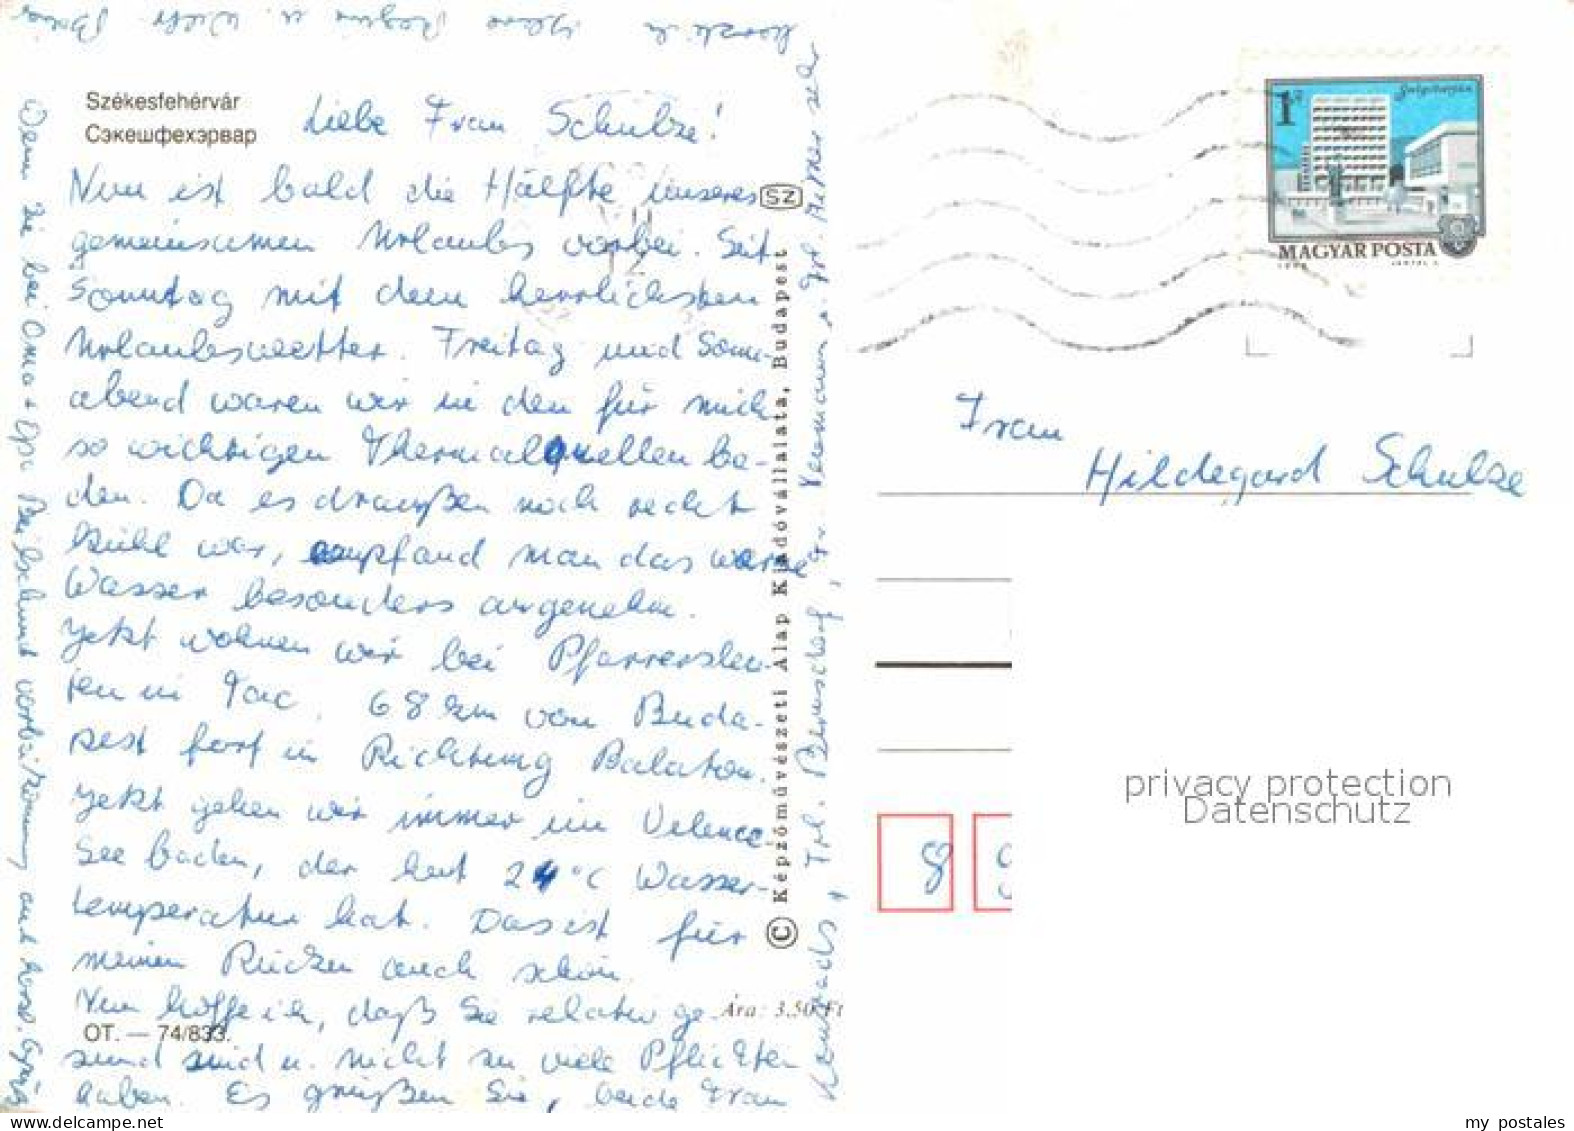 Székesfehérvár
Сэкешфехэрвар
Liebe Frau Schulze!
Nun ist bald die Hälfte unseres
gemeinsamen Urlaubs vorbei. Seit
Sonntag mit dem herrlichsten
Urlaubswetter. Freitag und Sonn-
abend waren wir in den für mich
so wichtigen Thermalquellen ba-
den. Da es draußen noch recht
kühl war, empfand man das warme
Wasser besonders angenehm.
Jetzt wohnen wir bei Pfarrersleu-
ten in Tac, 68 km von Buda-
pest fort in Richtung Balaton.
Jetzt gehen wir immer im Velence-
See baden, der heut 24°C Wasser-
temperatur hat. Das ist für
meinen Rücken auch schön.
Nun hoffe ich, daß Sie relativ ge-
sund sind u. nicht zu viele Pflichten
haben. Es grüßen Sie, beide Frau
Konrads, Frl. Bernsdorf, Fr. u. Frl.
herzlich Ihre u.
Wenn Sie bei Oma + Opa vorbeikommen, auch herzl. Grüße
SZ
© Képzőművészeti Alap Kiadóvállalata, Budapest
Ára: 3,50 Ft
OT. — 74/833.
1 Ft
Salgótarján
MAGYAR POSTA
Frau
Hildegard Schulze
8
privacy protection
Datenschutz
my postales